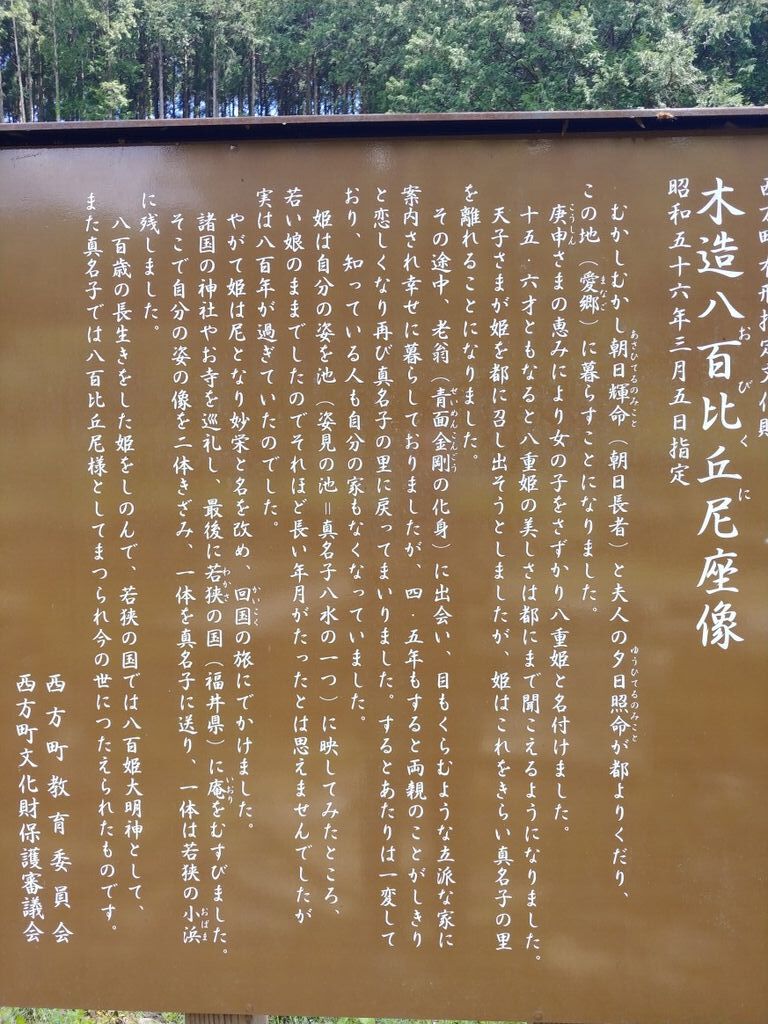 西方町有形指定文化財
昭和五十六年三月五日指定
おびくに
木造八百比丘尼座像
あさひてるのみこと
ゆうひてるのみこと
むかしむかし朝日輝命（朝日長者）と夫人の夕日照命が都よりくだり、
まなご
この地（愛郷）に暮らすことになりました。
こうしん
庚申さまの恵みにより女の子をさずかり八重姫と名付けました。
十五・六才ともなると八重姫の美しさは都にまで聞こえるようになりました。
天子さまが姫を都に召し出そうとしましたが、姫はこれをきらい真名子の里
を離れることになりました。
せいめんこんごう
その途中、老翁（青面金剛の化身）に出会い、目もくらむような立派な家に
案内され幸せに暮らしておりましたが、四・五年もすると両親のことがしきり
と恋しくなり再び真名子の里に戻ってまいりました。するとあたりは一変して
おり、知っている人も自分の家もなくなっていました。
姫は自分の姿を池（姿見の池＝真名子八水の一つ）に映してみたところ、
若い娘のままでしたのでそれほど長い年月がたったとは思えませんでしたが
実は八百年が過ぎていたのでした。
かいこく
やがて姫は尼となり妙栄と名を改め、回国の旅にでかけました。
わかさ
いおり
諸国の神社やお寺を巡礼し、最後に若狭の国（福井県）に庵をむすびました。
おばま
そこで自分の姿の像を二体きざみ、一体を真名子に送り、一体は若狭の小浜
に残しました。
八百歳の長生きをした姫をしのんで、若狭の国では八百姫大明神として、
また真名子では八百比丘尼様としてまつられ今の世につたえられたものです。
西方町教育委員会
西方町文化財保護審議会